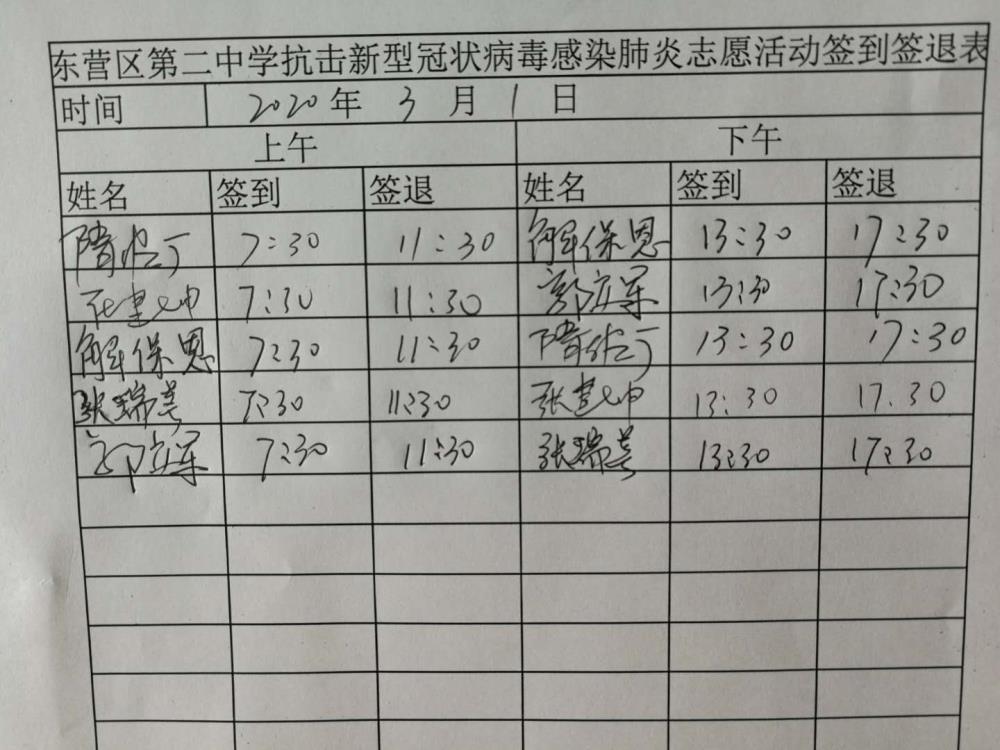 东营区第二中学抗击新型冠状病毒感染肺炎志愿活动签到签退表
时间 2020年 3 月 1 日
上午 下午
姓名 签到 签退 姓名 签到 签退
7:30 11:30 解保恩 13:30 17:30
张建忠 7:30 11:30 郭立军 13:30 17:30
解保恩 7:30 11:30 13:30 17:30
张瑞芸 7:30 11:30 张建忠 13:30 17.30
郭立军 7:30 11:30 张瑞芸 13:30 17:30